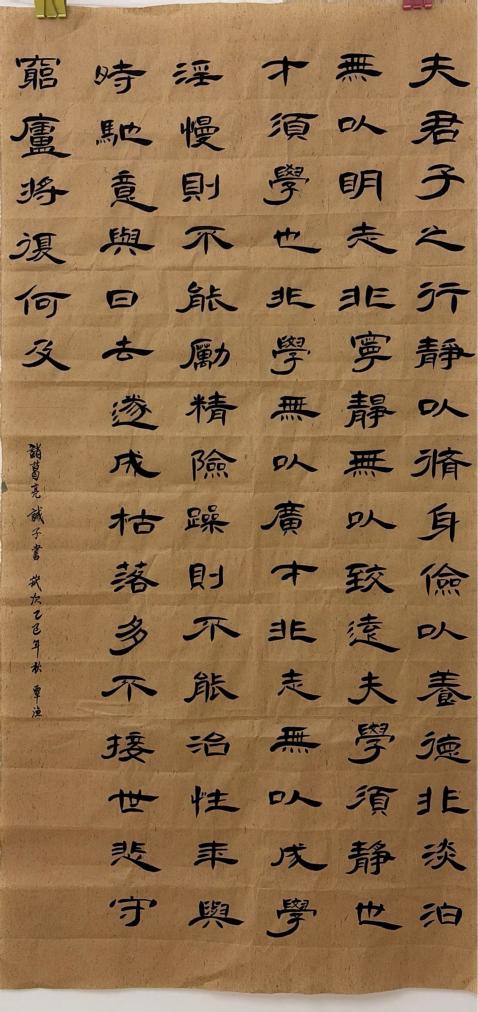 夫君子之行靜以脩身儉以養德非淡泊
無以明志非寧靜無以致遠夫學須靜也
才須學也非學無以廣才非志無以成學
淫慢則不能勵精險躁則不能治性年與
時馳意與日去遂成枯落多不接世悲守
窮廬將復何及
諸葛亮誡子書 歲次乙巳年秋 覃漁